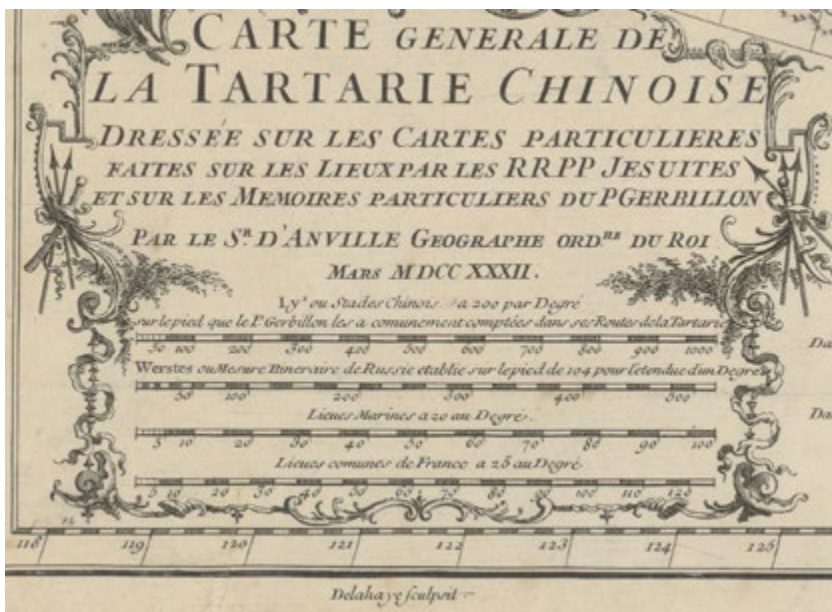 CARTE GENERALE DE
LA TARTARIE CHINOISE
DRESSÉE SUR LES CARTES PARTICULIERES
FAITES SUR LES LIEUX PAR LES RRPP JESUITES
ET SUR LES MEMOIRES PARTICULIERS DU P GERBILLON
PAR LE SR. D'ANVILLE GEOGRAPHE ORD.RE DU ROI
MARS MDCCXXXII.
Lys ou Stades Chinois a 200 par Degré
sur le pied que le P. Gerbillon les a comunement comptées dans ses Routes de la Tartarie
50 100 200 300 400 500 600 700 800 900 1000
Werstes ou Mesure Itineraire de Russie etablie sur le pied de 104 pour l'etendue d'un Degré
50 100 200 300 400 500
Lieues Marines a 20 au Degré.
5 10 20 30 40 50 60 70 80 90 100
Lieues comunes de France a 25 au Degré
5 10 20 30 40 50 60 70 80 90 100 110 120
Da
Da
118 119 120 121 122 123 124 125
Delahaye sculpsit